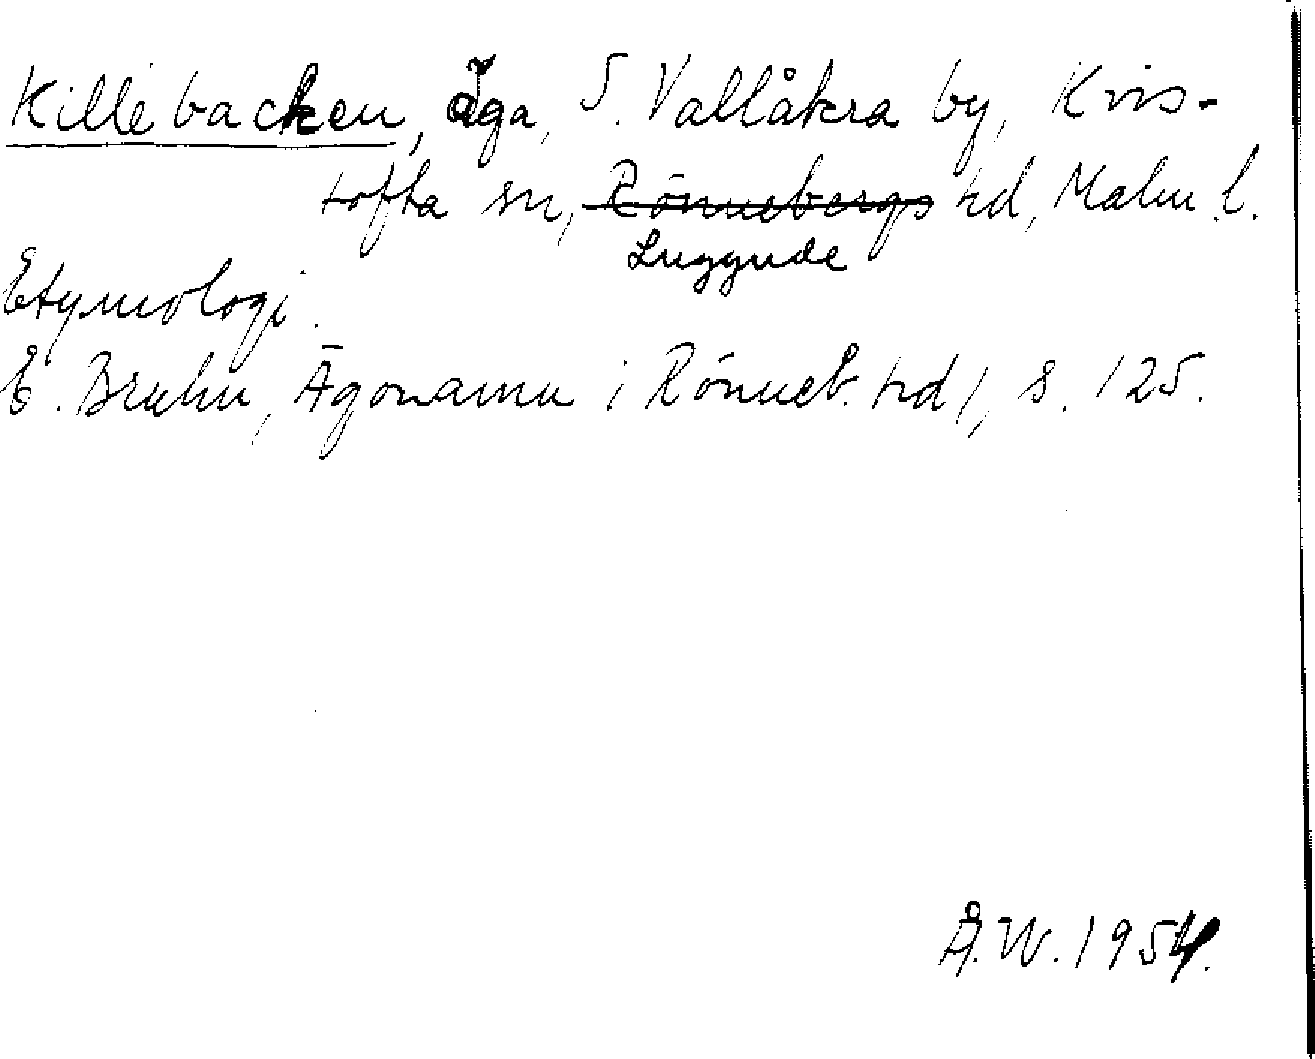 Killebacken, äga, S. Vallåkra by, Kvis-
tofta sn, Rönnebergs hd, Malm. l.
Luggude
Etymologi.
E. Bruhn, Ägonamn i Rönneb. hd 1, s. 125.
Å.W. 1954.